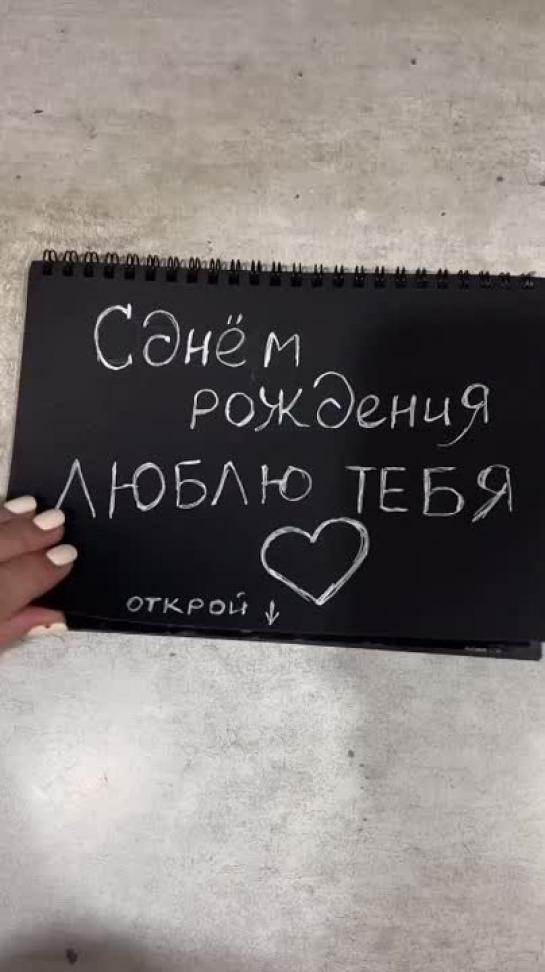 С днём
рождения
ЛЮБЛЮ ТЕБЯ
ОТКРОЙ ↓